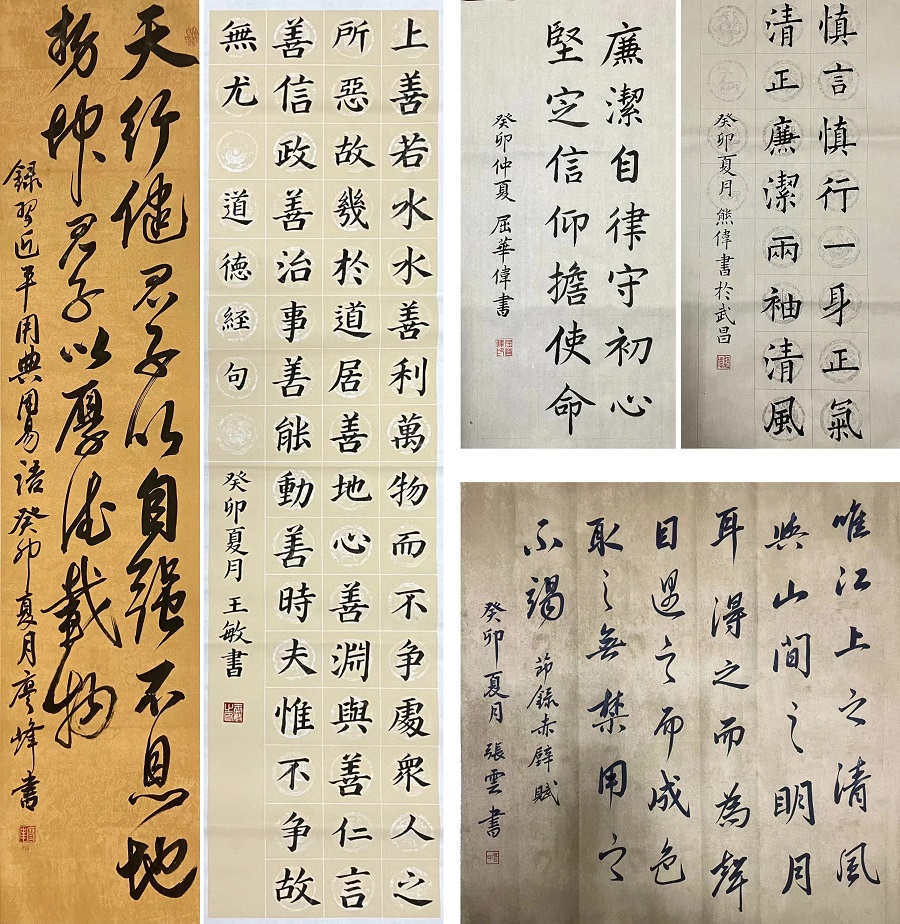 天行健君子以自强不息地
势坤君子以厚德載物
錄習近平用典周易語癸卯夏月廖峰書
上善若水水善利萬物而不争處衆人之
所惡故幾於道居善地心善淵與善仁言
善信政善治事善能動善時夫惟不争故
無尤 道德經句
癸卯夏月 王敏書
廉潔自律守初心
堅定信仰擔使命
癸卯仲夏 屈華偉書
慎言慎行一身正氣
清正廉潔兩袖清風
癸卯夏月熊偉書於武昌
唯江上之清風
與山間之明月
耳得之而為聲
目遇之而成色
取之無禁用之
不竭 節錄赤壁賦
癸卯夏月 張雲書